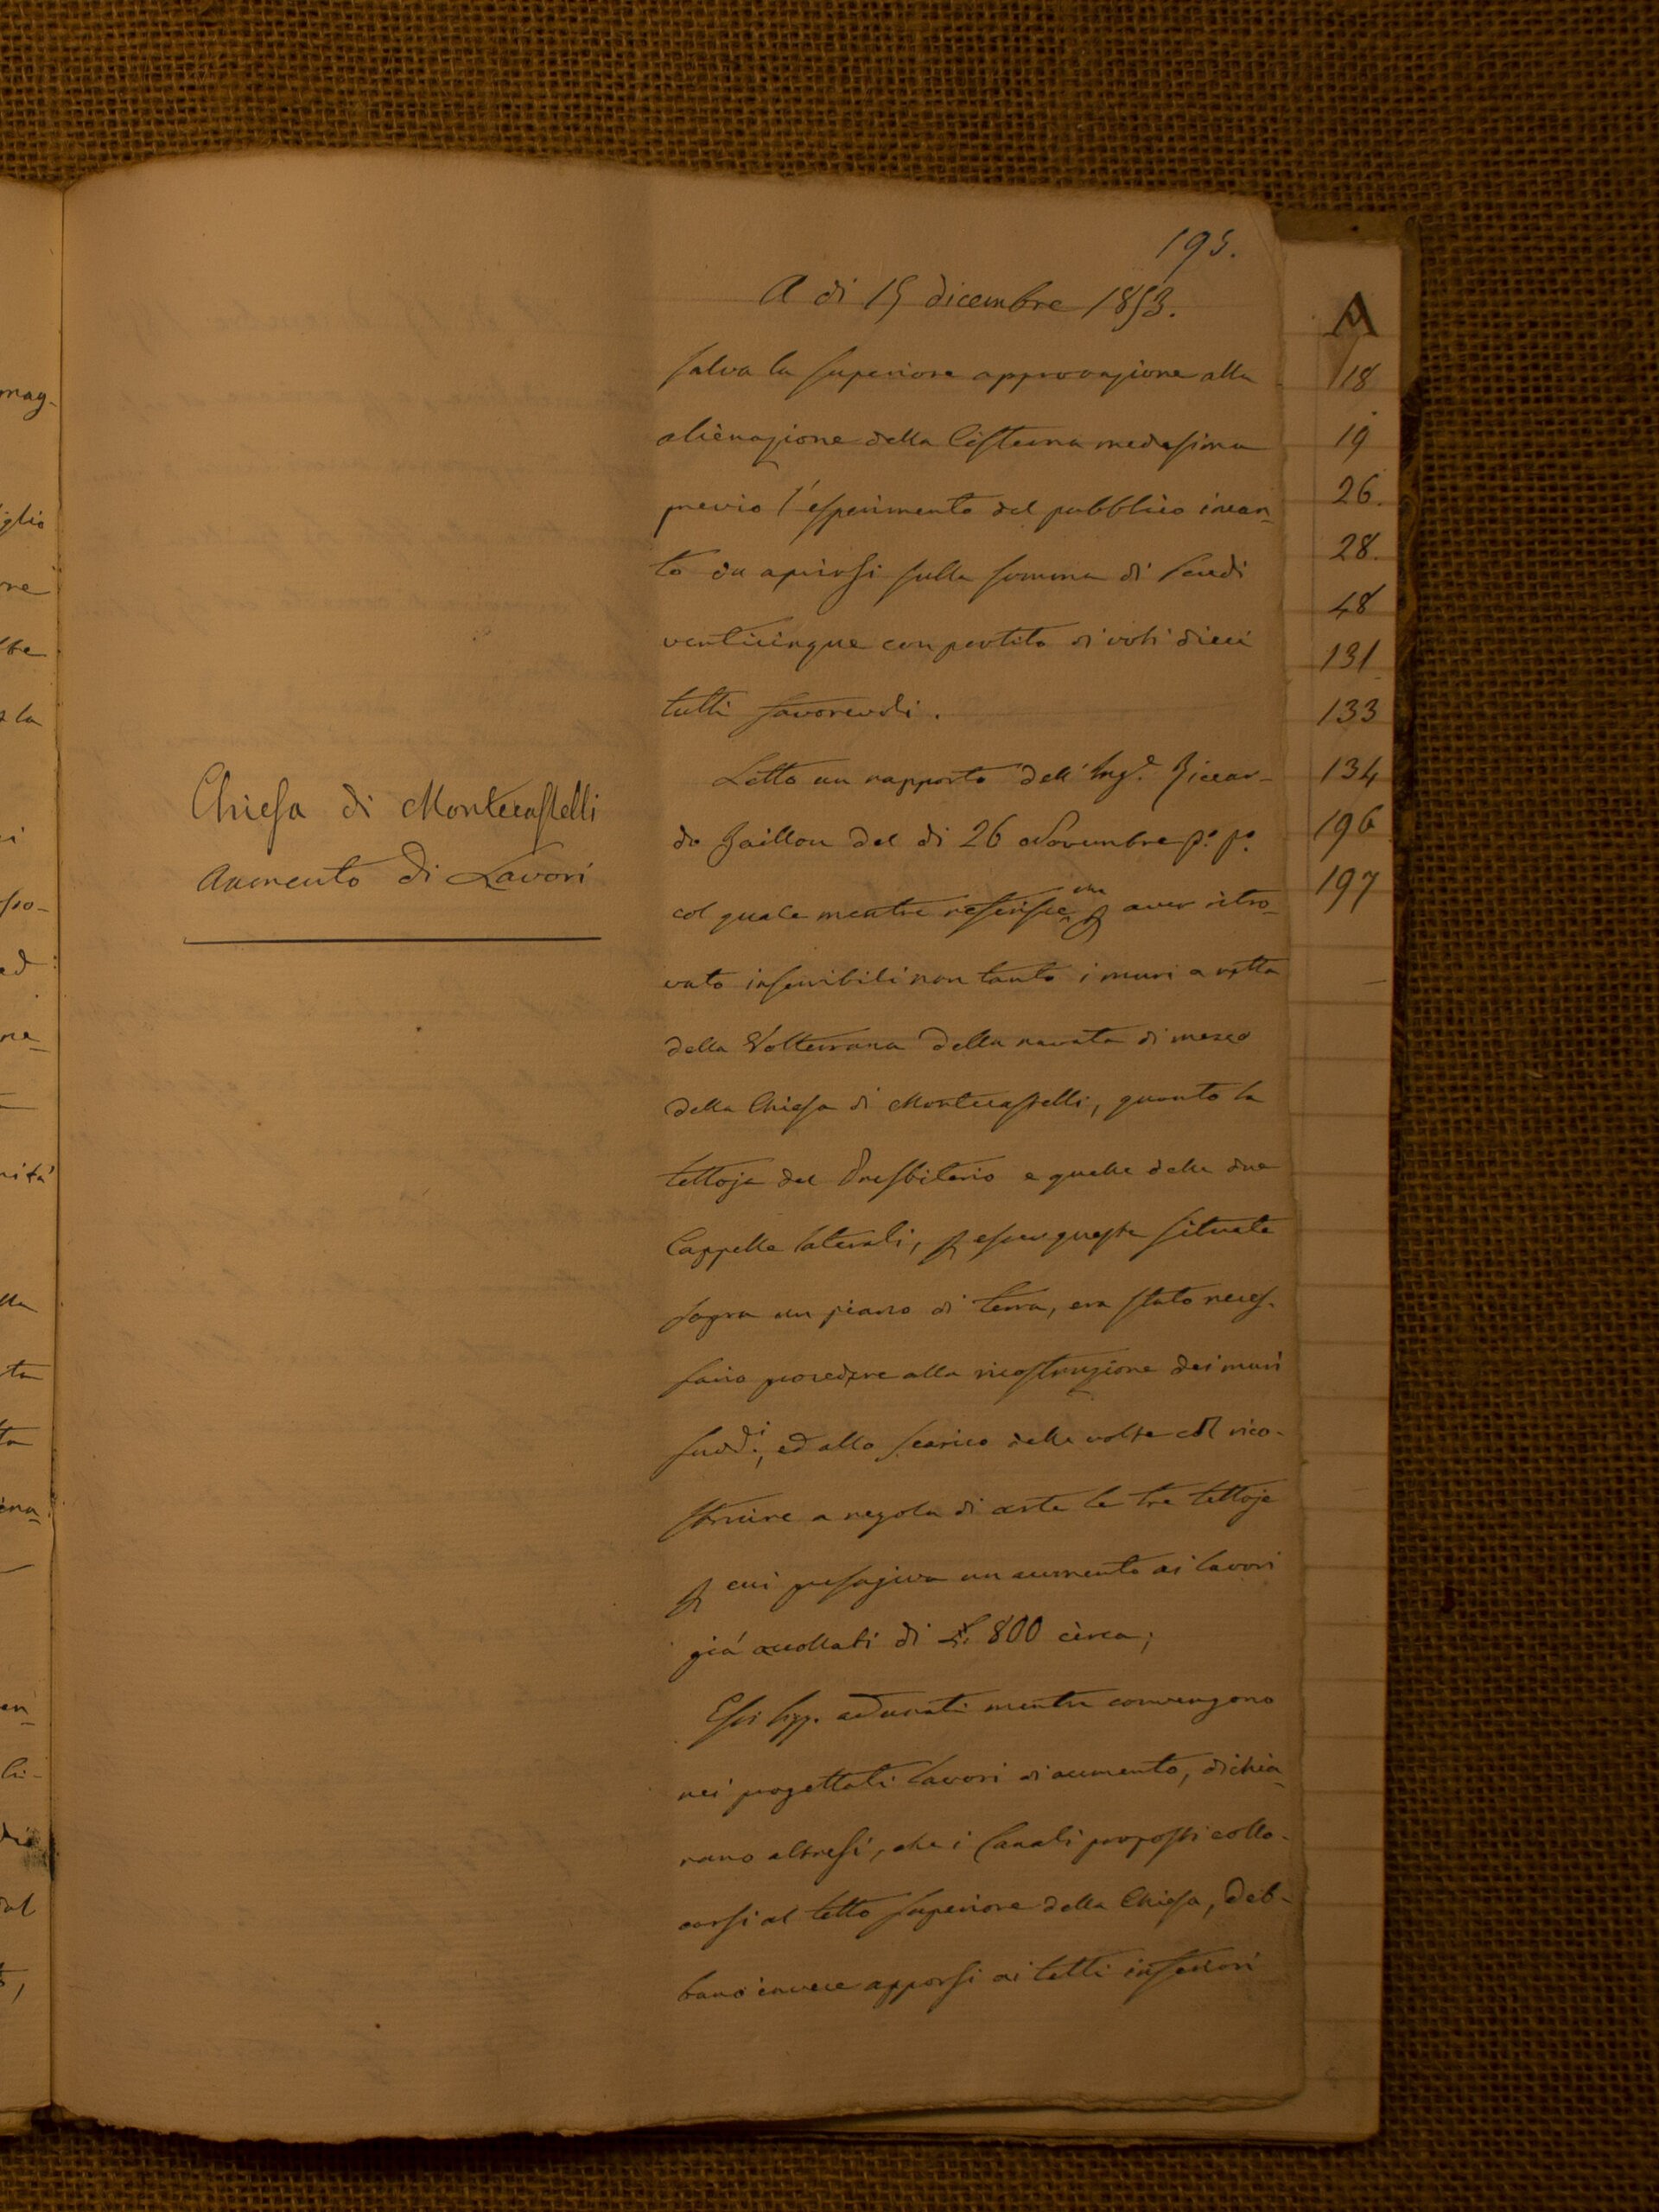 195.
A di 15 dicembre 1853.
salva la superiore approvazione alla
alienazione della Cisterna medesima
previo l'esperimento del pubblico incan-
to da aprirsi sulla somma di Scudi
venticinque con partito di voti dieci
tutti favorevoli.
Chiesa di Montecastelli
Aumento di Lavori
Letto un rapporto dell'Ing.e Riccar-
do Baillou del di 26 Novembre p.o p.o
col quale mentre referisce che p aver ritro-
vato inservibili non tanto i muri a retta
della Volterrana della navata di mezzo
della Chiesa di Montecastelli, quanto la
tettoja del Presbiterio e quelle delle due
Cappelle laterali, p esser queste situate
sopra un piano di terra, era stato neces-
sario procedere alla ricostruzione dei muri
sudd.i, ed allo scarico delle volte col rico-
struire a regola di arte le tre tettoje
p cui presagiva un aumento ai lavori
giá accollati di 800 circa;
Essi Sigg. adunati mentre convengono
nei progettati lavori di aumento, dichia-
rano altresi, che i Canali proposti collo-
carsi al tetto superiore della Chiesa, deb-
bano invece apporsi ai tetti inferiori
A
18
19
26.
28.
48
131
133
134
196
197
mag-
iglio
re
la
ed
ne-
ritá
lla
ta
ena
en-
li-
dal